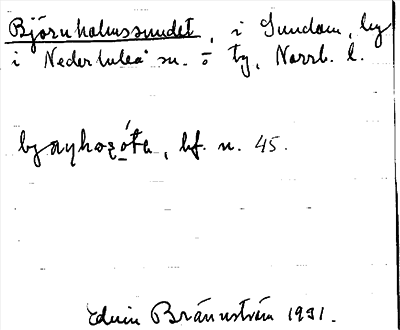 Björnholmssundet, i Sundom, by
i Nederluleå sn. o ty, Norrb. l.
bf. n. 45.
Edvin Brännström 1931.